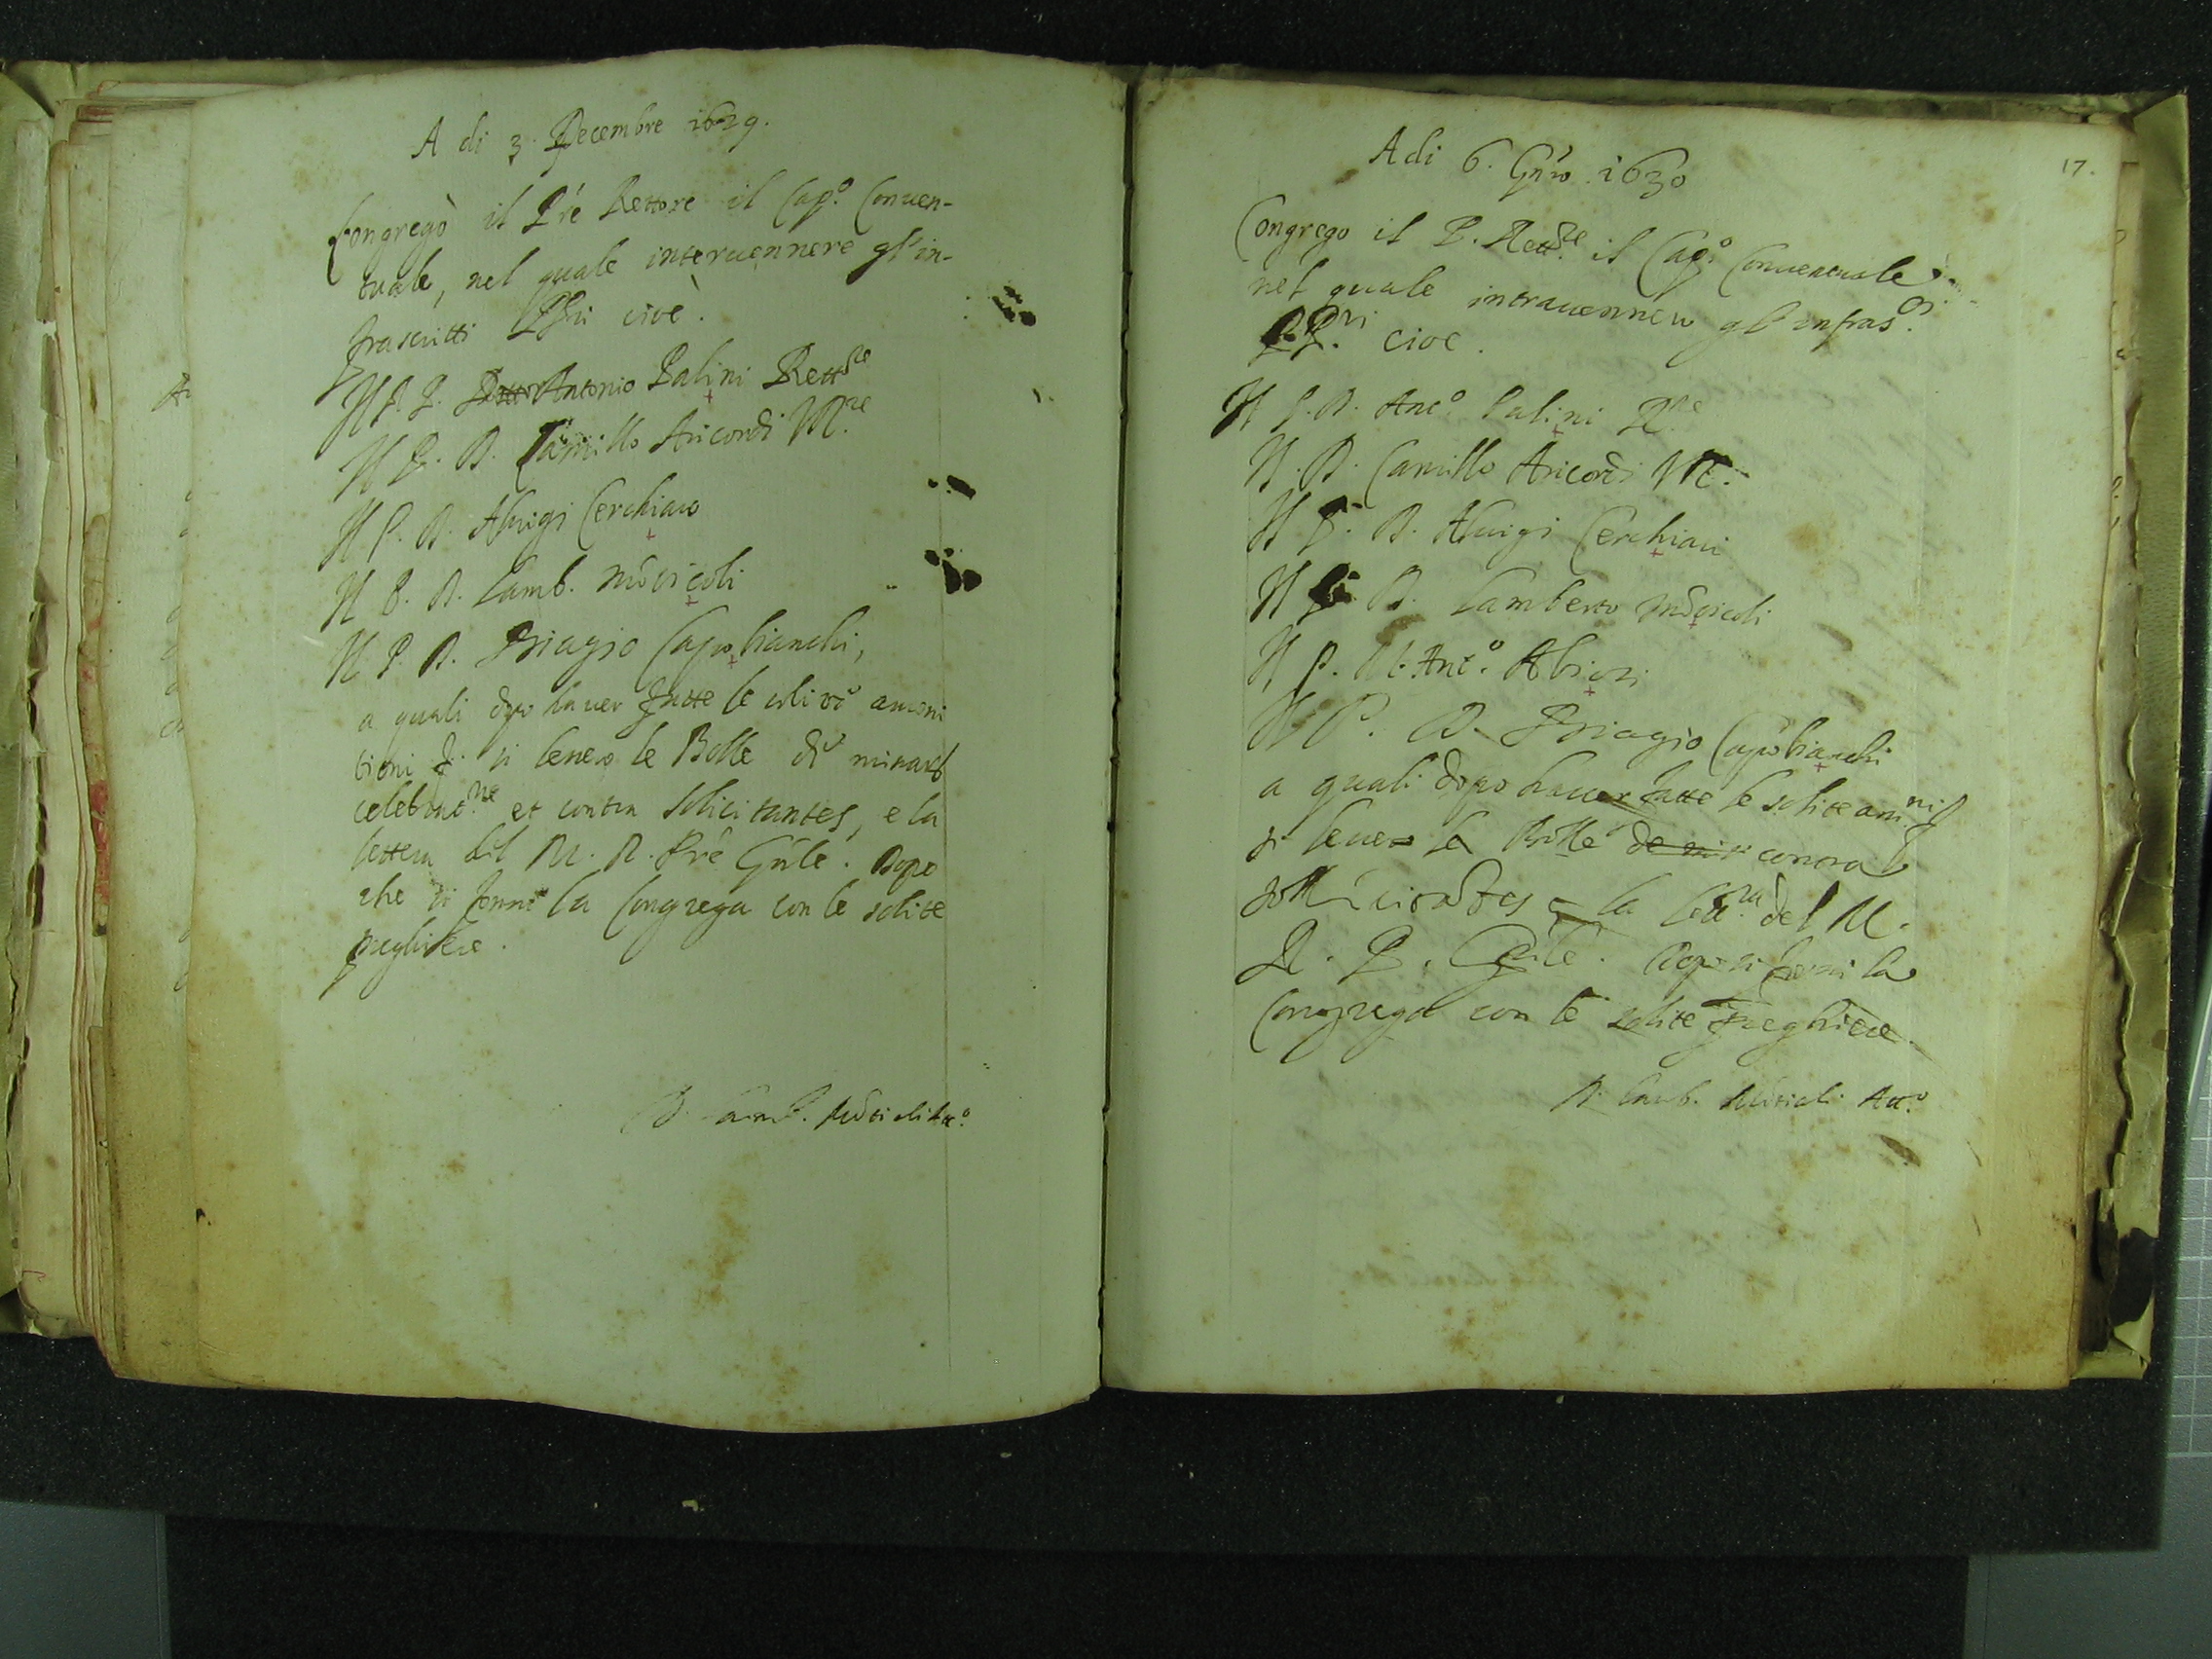 A di 3. Decembre 1629.
Congregò il Pre Rettore il Cap.o Conuen-
tuale, nel quale interuennere gl'in-
frascritti PPri cioè.
Il P. D. Antonio Palini Rett.re
Il P. D. Camillo Aricordi
Il P. D. Aluigi Cerchiaro
Il P. D. Lamb.
Il P. D. Biagio Capobianchi,
a quali dopo hauer fatte le amoni
tioni si lessero le Bolle
celebrat.ne et contra solicitantes, e la
lettera del M. R. Pre Gnle. Dopo
che si fornì la Congrega con le solite
preghiere.
D. Lamb.
17.
Adi 6. Gnro 1630
Congrego il P. Rett.re il Cap.o Conuentuale
nel quale interuennero gl'infras.ti
PP.ri cioe.
Il P. D. Ant.o Palini R.re
Il D. Camillo Aricordi
Il P. D. Aluigi Cerchiari
Il P. D. Lamberto
Il P. D. Ant.o Abiosi
Il P. D. Biagio Capobianchi
a quali dopo hauer fatte le solite am.ni
si lesero le Bolle contra
sollicitantes e la lett.ra del M.
R. P. Gnle. Dopo si fornì la
Congrega con le solite preghiere.
D. Lamb.